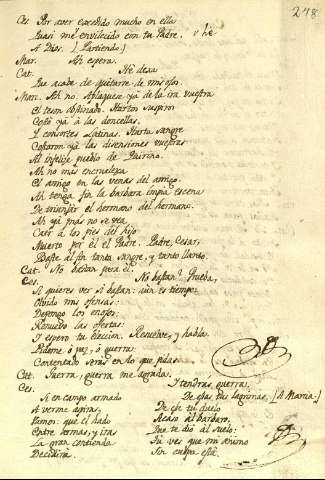 248
Ces. Por aver excedido mucho en ella
Quasi me envilecido con tu Padre. y he
A Dios. (Partiendo.)
Mar. Ah espera.
Cat. Ne dexa
Que acabe de quitarse de mis ojos
Marc. Ah no. Aplaquese ya de la ira vuestra
El teson obstinado. Hartos suspiros
Costó yá à las doncellas,
Y consortes Latinas. Harta sangre
Costaron yá las disensiones vuestras
Al infelize pueblo de Quirino.
Ah no mas encruelezca
El amigo en las venas del amigo.
Ah tenga fin la barbara impia escena
De triunfar el hermano del hermano.
Ah ya mas no se vea
Caer à los pies del hijo
Muerto por èl el Padre. Padre, Cesar,
Baste al fin tanta sangre, y tanto llanto.
Cat. No bastan para èl.
Ces. No bastan? Prueba,
Si quieres ver si bastan: aun es tiempo:
Olvido mis ofensas:
Depongo los enojos:
Renuevo las ofertas:
Y espero tu eleccion. Resuelve, y habla.
Pideme, ò paz, ò guerra:
Contentado seràs en lo que pidas.
Cat. Guerra, guerra me agrada.
Ces. Y tendras guerra.
Si en campo armado
A verme aspiras,
Vamos: que el hado
Entre armas, y iras
La gran contienda
Decidirà.
De essas tus lagrimas, (A Marcia.)
De esse tu duelo
Acusa al barbaro,
Que te diò al suelo:
Tu ves que mi animo
Sin culpa està.